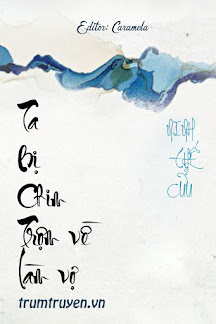 Editor: Caramela
Ta
Bị
Chin
Trọn về
làm vợ
trumtruyen.vn